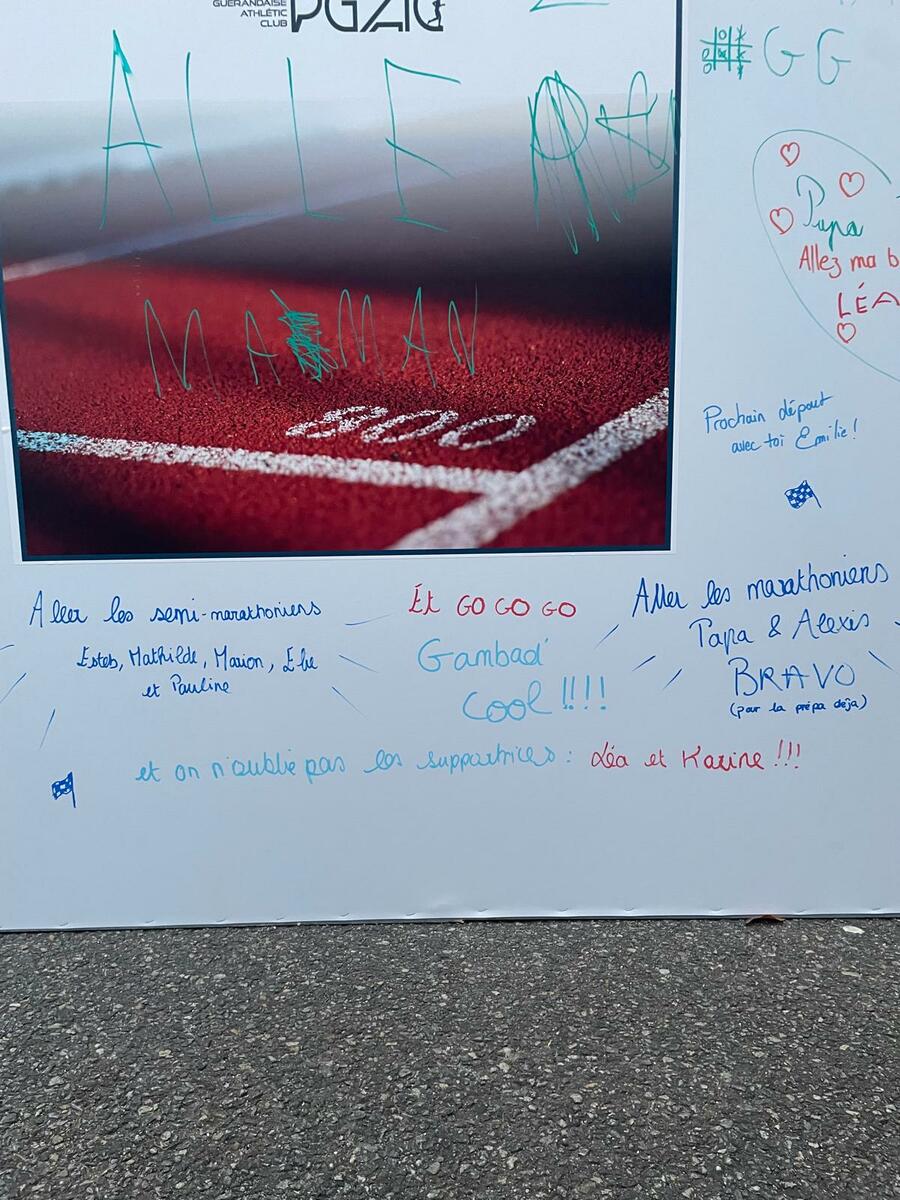 GUÉRANDAISE
ATHLÉTIC
CLUB
PGAC
GG
ALLE
Papa
Allez ma b
LÉA
MAMAN
800
Prochain départ
avec toi Emilie!
Aller les semi-marathoniens
Esteb, Mathilde, Marion, Elie
et Pauline
Et GO GO GO
Gambad'
Cool !!!!
Aller les marathoniens
Papa & Alexis
BRAVO
(pour la prépa déjà)
et on n'oublie pas les supportrices : Léa et Karine !!!